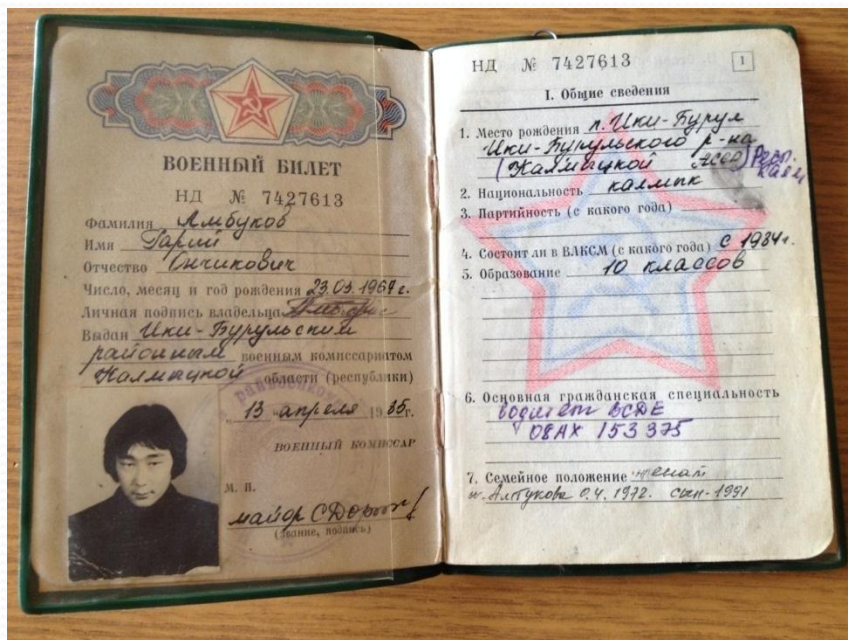 ВОЕННЫЙ БИЛЕТ
НД № 7427613
Фамилия Амбуков
Имя Гарий
Отчество Ончикович
Число, месяц и год рождения 23.03.1967 г.
Личная подпись владельца
Выдан Ики-Бурульским
районным военным комиссариатом
Калмыцкой области (республики)
"13" апреля 1985 г.
ВОЕННЫЙ КОМИССАР
М. П.
майор
(звание, подпись)
НД № 7427613
1
I. Общие сведения
1. Место рождения п. Ики-Бурул
Ики-Бурульского р-на
(Калмыцкой АССР) Респ.
Калм
2. Национальность калмык
3. Партийность (с какого года)
4. Состоит ли в ВЛКСМ (с какого года) с 1984 г.
5. Образование 10 классов
6. Основная гражданская специальность
водитель ВСДЕ
153375
7. Семейное положение женат
ж. 1972. сын-1991